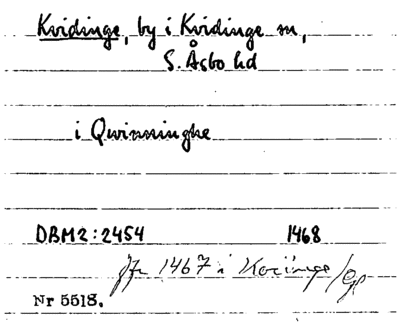 Kvidinge, by i Kvidinge sn,
S. Åsbo hd
i Qwinningke
DBM2:2454 1468
jfr 1467 i
Nr 5518.